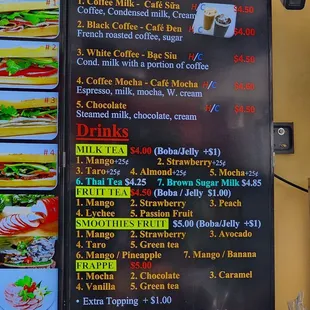 1. Coffee Milk - Café Sữa
Coffee, Condensed milk, Cream $4.50
2. Black Coffee - Café Đen H/C
French roasted coffee, sugar $4.50
3. White Coffee - Bạc Sỉu H/C
Cond. milk with a portion of coffee $4.50
4. Coffee Mocha - Café Mocha H/C
Espresso, milk, mocha, W. cream $4.50
5. Chocolate H/C
Steamed milk, chocolate, cream $4.50
Drinks
MILK TEA $4.00 (Boba/Jelly +$1)
1. Mango+25¢ 2. Strawberry+25¢
3. Taro+25¢ 4. Almond+25¢ 5. Mocha+25¢
6. Thai Tea $4.25 7. Brown Sugar Milk $4.85
FRUIT TEA $4.50 (Boba/ Jelly $1.00)
1. Mango 2. Strawberry 3. Peach
4. Lychee 5. Passion Fruit
SMOOTHIES FRUIT $5.00 (Boba/Jelly +$1)
1. Mango 2. Strawberry 3. Avocado
4. Taro 5. Green tea
6. Mango / Pineapple 7. Mango / Banana
FRAPPE $5.00
1. Mocha 2. Chocolate 3. Caramel
4. Vanilla 5. Green tea
• Extra Topping + $1.00
# 1
# 2
# 3
# 4